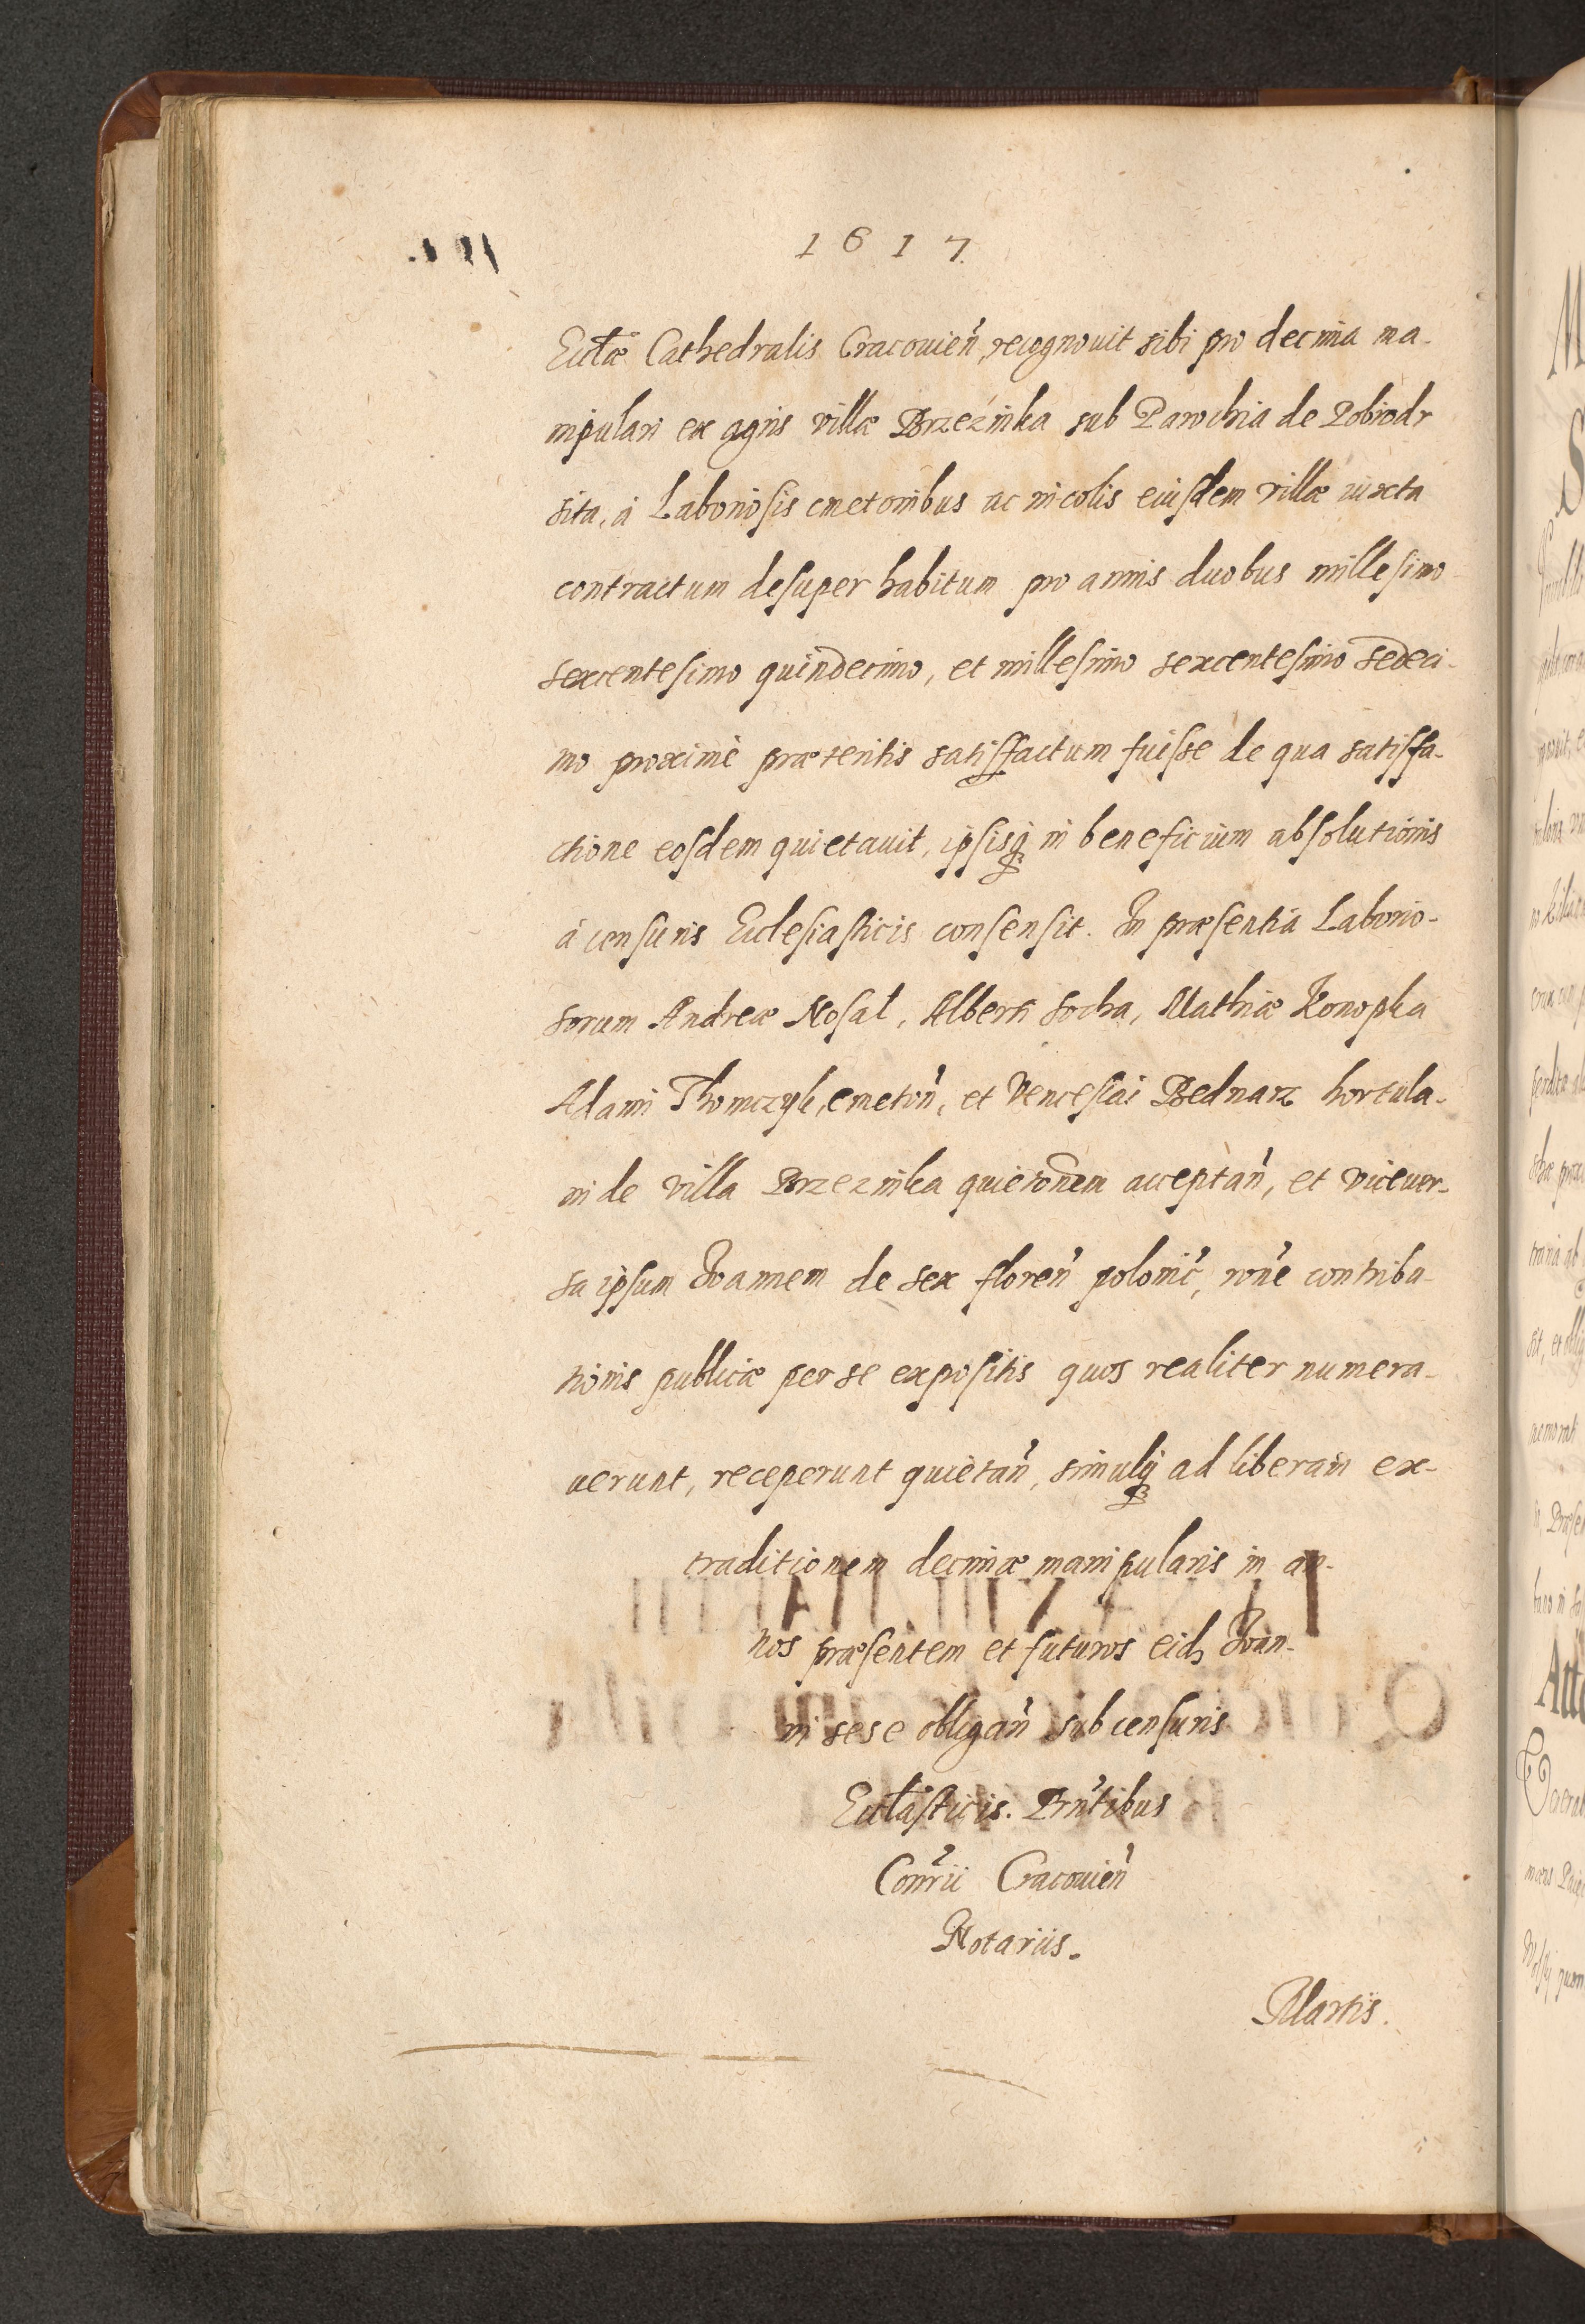 1617.
Eccłæ Cathedralis Cracouien̄, recognouit sibi pro decima ma-
nipulari ex agris villæ Brzezinka sub Parochia de Pobiedr
sita, à Laboriosis cmetonibus ac incolis eiusdem villæ iuxta
contractum desuper habitum pro annis duobus millesimo
sexcentesimo quindecimo, et millesimo sexcentesimo sedeci-
mo proximè præteritis satisfactum fuisse de qua satisfa-
ctione eosdem quietauit, ipsisq; in beneficium absolutionis
à censuris Ecclesiasticis consensit. In præsentia Laborio-
sorum Andreæ Nosal, Alberti Socha, Mathiæ Konopka
Adami Thomczyk, cmeton̄, et Venceslai Bednarz hortula-
ni de villa Brzezinka quietonem acceptan̄, et viceuer-
sa ipsum Joannem de sex floren̄ polonic̄, rōne contribu-
tionis publicæ per se expositis quos realiter numera-
uerunt, receperunt quietan̄, simulq; ad liberam ex-
traditionem decimæ manipularis in an-
nos præsentem et futuros eid; Joan-
ni sese obligan̄ sub censuris
Eccłasticis. Prn̄tibus
Conr̄ii Cracouien̄
Notariis.
Martis.